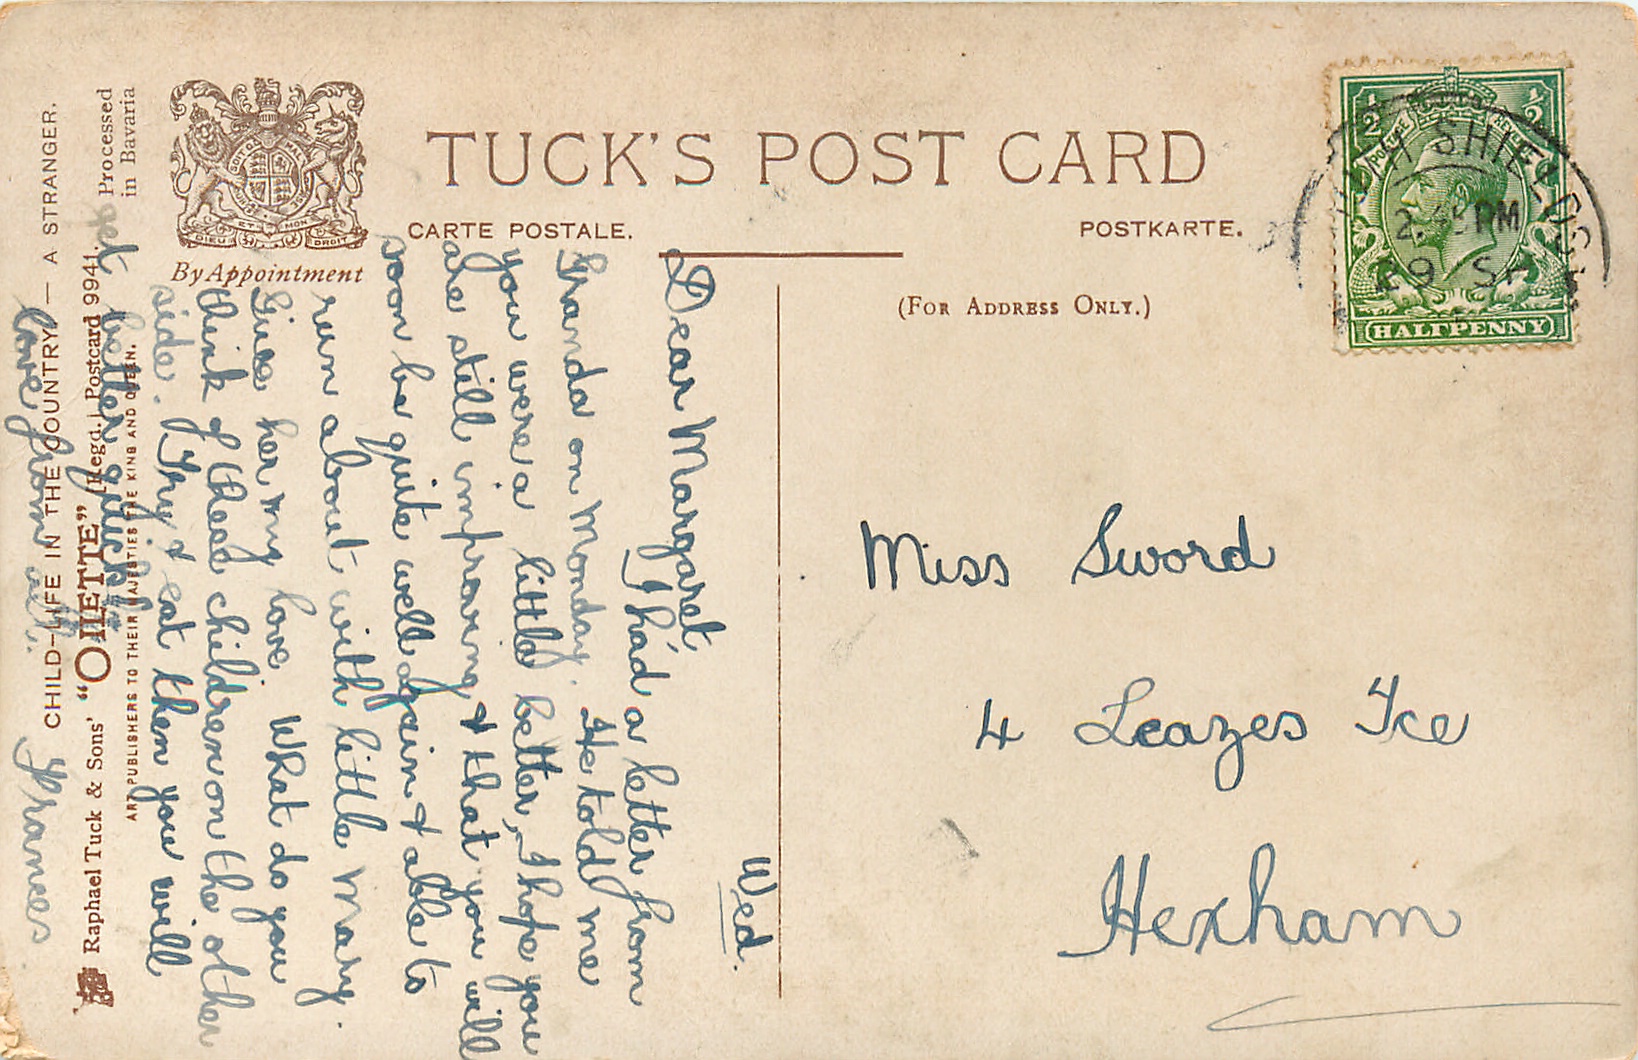 TUCK'S POST CARD
CARTE POSTALE.
POSTKARTE.
By Appointment
DIEU ET MON DROIT
(FOR ADDRESS ONLY.)
SHIELDS
2.45 PM
POSTAGE
½ ½
HALFPENNY
Miss Sword
4 Leazes Tce
Hexham
Wed.
Dear Margaret,
I had a letter from
Granda on Monday. He told me
you were a little better, I hope you
are still improving & that you will
soon be quite well again & able to
run about with little Mary.
Give her my love. What do you
think of these children on the other
side. Try & eat then you will
get better quickly.
love from all. Frances
Processed
in Bavaria
ART PUBLISHERS TO THEIR MAJESTIES THE KING AND QUEEN.
Raphael Tuck & Sons' "OILETTE" [Regd.] Postcard 9941.
CHILD-LIFE IN THE COUNTRY — A STRANGER.